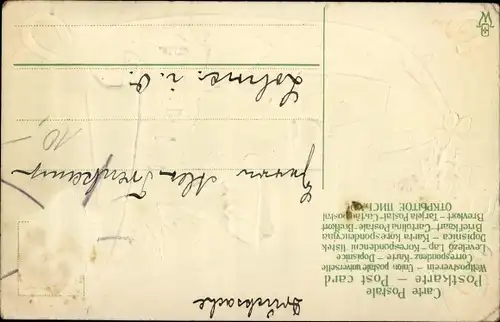 Drucksache
Carte Postale
Postkarte – Post card
Weltpostverein – Union postale universelle
Correspondenz-Karte – Dopisnice
Levelező-Lap – Korespondencni listek
Dopisnica – Karta korespondencyjna
Briefkaart – Cartolina Postale – Brefkort
Brevkort – Tarjeta Postal – Cartão postal
ОТКРЫТОЕ ПИСЬМО
Herrn Alex Trenkamp
Lohne i. O.
10